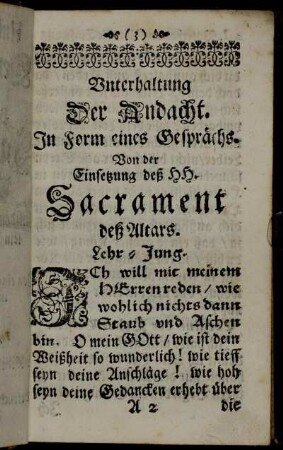 (3)
Vnterhaltung
Der Andacht.
In Form eines Gesprächs.
Von der
Einsetzung deß HH.
Sacrament
deß Altars.
Lehr-Jung.
ICh will mit meinem
HErren reden / wie
wohl ich nichts dann
Staub vnd Aschen
bin. O mein GOtt / wie ist dein
Weißheit so wunderlich! wie tieff
seyn deine Anschläge! wie hoh
seyn deine Gedancken erhebt über
A 2 die